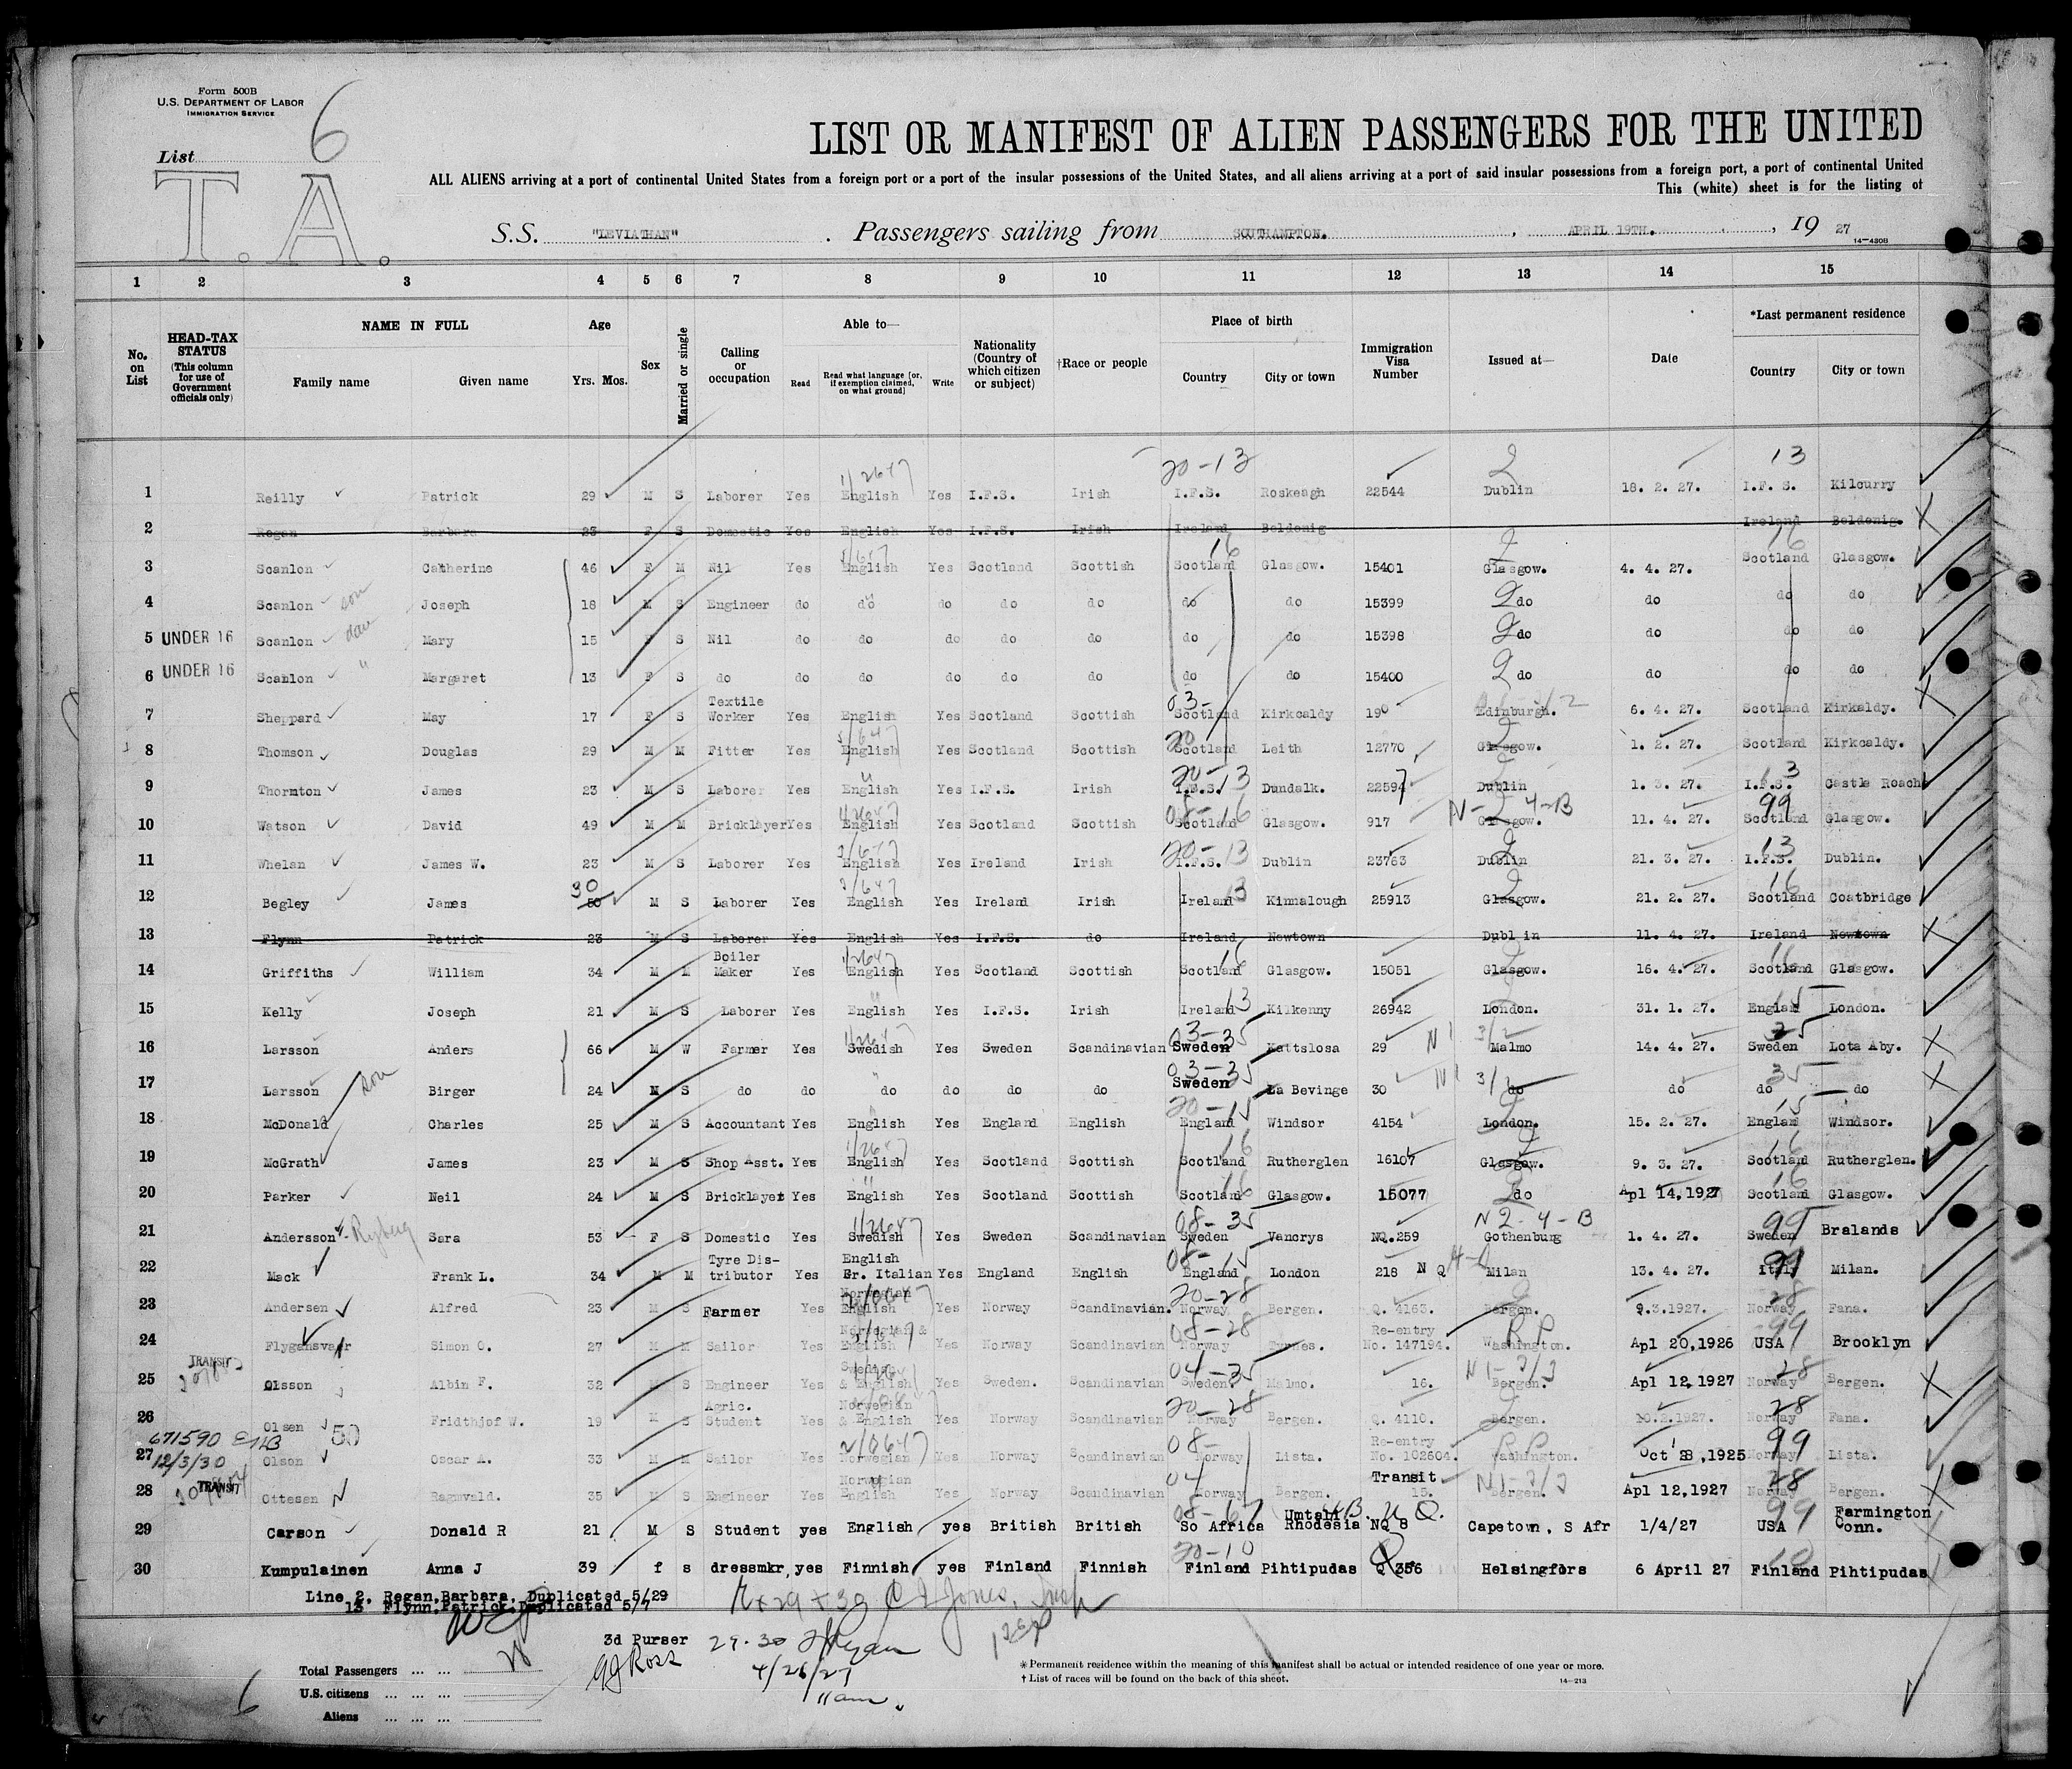 Form 500B
U.S. DEPARTMENT OF LABOR
IMMIGRATION SERVICE
List 6
T. A.
LIST OR MANIFEST OF ALIEN PASSENGERS FOR THE UNITED
ALL ALIENS arriving at a port of continental United States from a foreign port or a port of the insular possessions of the United States, and all aliens arriving at a port of said insular possessions from a foreign port, a port of continental United
This (white) sheet is for the listing of
S.S. "LEVIATHAN" . Passengers sailing from SOUTHAMPTON. , APRIL 19TH. , 19 27
14-430B
1 2 3 4 5 6 7 8 9 10 11 12 13 14 15
No. on List
HEAD-TAX STATUS (This column for use of Government officials only)
NAME IN FULL
Family name Given name
Age
Yrs. Mos.
Sex
Married or single
Calling or occupation
Able to—
Read
Read what language [or, if exemption claimed, on what ground]
Write
Nationality (Country of which citizen or subject)
†Race or people
Place of birth
Country City or town
Immigration Visa Number
Issued at—
Date
*Last permanent residence
Country City or town
20-13 2 13
1 Reilly Patrick 29 M S Laborer Yes English Yes I.F.S. Irish I.F.S. Roskeagh 22544 Dublin 18. 2. 27. I.F. S. Kilcurry
2 Regan Barbara 23 F S Domestic Yes English Yes I.F.S. Irish Ireland Beldenig Ireland Beldenig.
3 Scanlon Catherine 46 F M Nil Yes English Yes Scotland Scottish Scotland Glasgow. 15401 Glasgow. 4. 4. 27. Scotland Glasgow.
4 Scanlon son Joseph 18 M S Engineer do do do do do do do 15399 2 do do do do
5 UNDER 16 Scanlon dau Mary 15 F S Nil do do do do do do do 15398 2 do do do do
6 UNDER 16 Scanlon " Margaret 13 F S do do do do do do do do 15400 2 do do do do
7 Sheppard May 17 F S Textile Worker Yes English Yes Scotland Scottish Scotland Kirkcaldy 190 Edinburgh. 6. 4. 27. Scotland Kirkaldy.
8 Thomson Douglas 29 M M Fitter Yes English Yes Scotland Scottish Scotland Leith 12770 Glasgow. 1. 2. 27. Scotland Kirkcaldy.
9 Thornton James 23 M S Laborer Yes English Yes I.F.S. Irish I.F.S. Dundalk. 22597 Dublin 1. 3. 27. I.F.S. Castle Roach
10 Watson David 49 M M Bricklayer Yes English Yes Scotland Scottish Scotland Glasgow. 917 Glasgow. 11. 4. 27. Scotland Glasgow.
11 Whelan James W. 23 M S Laborer Yes English Yes Ireland Irish I.F.S. Dublin 23763 Dublin 21. 3. 27. I.F.S. Dublin.
30
12 Begley James 50 M S Laborer Yes English Yes Ireland Irish Ireland Kinnalough 25913 Glasgow. 21. 2. 27. Scotland Coatbridge
13 Flynn Patrick 23 M S Laborer Yes English Yes I.F.S. do Ireland Newtown Dublin 11. 4. 27. Ireland Newtown
14 Griffiths William 34 M M Boiler Maker Yes English Yes Scotland Scottish Scotland Glasgow. 15051 Glasgow. 16. 4. 27. Scotland Glasgow.
15 Kelly Joseph 21 M S Laborer Yes English Yes I.F.S. Irish Ireland Kilkenny 26942 London. 31. 1. 27. England London.
16 Larsson Anders 66 M W Farmer Yes Swedish Yes Sweden Scandinavian Sweden Kattslosa 29 Malmo 14. 4. 27. Sweden Lota Aby.
17 Larsson son Birger 24 M S do do do do do do Sweden La Bevinge 30 do do do do
18 McDonald Charles 25 M S Accountant Yes English Yes England English England Windsor 4154 London. 15. 2. 27. England Windsor.
19 McGrath James 23 M S Shop Asst. Yes English Yes Scotland Scottish Scotland Rutherglen 16107 Glasgow. 9. 3. 27. Scotland Rutherglen.
20 Parker Neil 24 M S Bricklayer Yes English Yes Scotland Scottish Scotland Glasgow. 15077 do Apl 14,1927 Scotland Glasgow.
21 Andersson Ryberg Sara 53 F S Domestic Yes Swedish Yes Sweden Scandinavian Sweden Vancrys NQ.259 N 2-4-B Gothenburg 1. 4. 27. Sweden Bralands
22 Mack Frank L. 34 M M Tyre Distributor Yes English Gr. Italian Yes England English England London 218 N Q Milan 13. 4. 27. Italy Milan.
23 Andersen Alfred 23 M S Farmer Yes Norwegian English Yes Norway Scandinavian. Norway Bergen. Q. 4163. Bergen. 9.3.1927. Norway Fana.
24 Simon O. 27 M M Sailor Yes Norwegian & English Yes Norway Scandinavian Norway Re-entry No. 147194. Washington. Apl 20,1926 USA Brooklyn
25 TRANSIT Olsson Albin F. 32 M S Engineer Yes & English Yes Sweden. Scandinavian Sweden. Malmo. 16. Bergen. Apl 12,1927 Norway Bergen.
26 Olsen Fridthjof W. 19 M S Agric. Student Yes Norwegian & English Yes Norway Scandinavian Norway Bergen. Q. 4110. Bergen. 10.2.1927. Norway Fana.
671590
27 12/3/30 Olson Oscar A. 33 M M Sailor Yes Norwegian Yes Norway Scandinavian Norway Lista. Re-entry No. 102604. Washington. Oct 8,1925 Norway Lista.
28 TRANSIT Ottesen Ragnvald. 35 M S Engineer Yes Norwegian English Yes Norway Scandinavian Norway Bergen. Transit 15. Bergen. Apl 12,1927 Norway Bergen.
29 Carson Donald R 21 M S Student yes English yes British British So Africa Umtali Rhodesia NQ 8 Capetown, S Afr 1/4/27 USA Farmington Conn.
30 Kumpulainen Anna J 39 f s dressmkr yes Finnish yes Finland Finnish Finland Pihtipudas Q 356 Helsingfors 6 April 27 Finland Pihtipudas
Line 2. Regan,Barbara. Duplicated 5/29
13 Flynn,Patrick.Duplicated 5/7
3d Purser
29-30
4/26/27
11am
Total Passengers ... ...
U.S. citizens ... ... ...
Aliens ... ... ...
6
*Permanent residence within the meaning of this manifest shall be actual or intended residence of one year or more.
†List of races will be found on the back of this sheet.
14-213